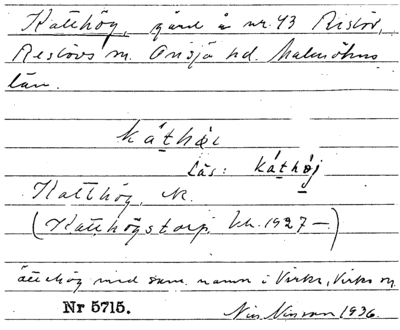 Katthög, gård å nr 43 Ristöv,
Restövs sn. Onsjö hd. Malmöhus
län.
káthǿi
Läs: káthǿj
Katthög, K.
(Katthögstorp. kh. 1927 —)
ätthög med sam. namn i Virke, Virke sn.
Nr 5715.
Nils Nilsson 1936.